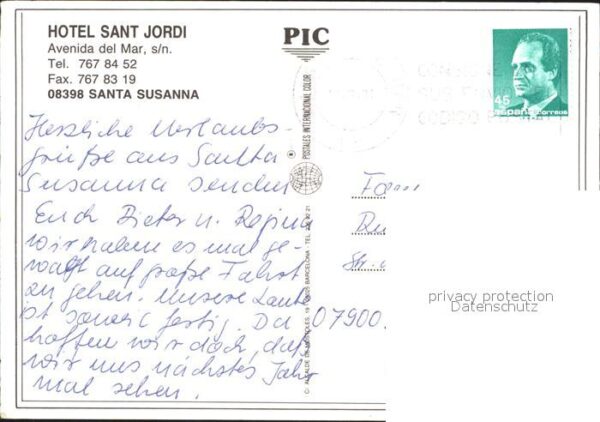 HOTEL SANT JORDI
Avenida del Mar, s/n.
Tel. 767 84 52
Fax. 767 83 19
08398 SANTA SUSANNA
PIC
45
España correos
POSTALES INTERNACIONAL COLOR
Herzliche Urlaubs-
grüße aus Santa
Susanna senden
Euch Dieter u. Regina
wir haben es mal ge-
wagt auf große Fahrt
zu gehen. Unsere Laube
ist soweit fertig. Da
hoffen wir doch, daß
wir uns nächstes Jahr
mal sehen.
Fam
07900
privacy protection
Datenschutz